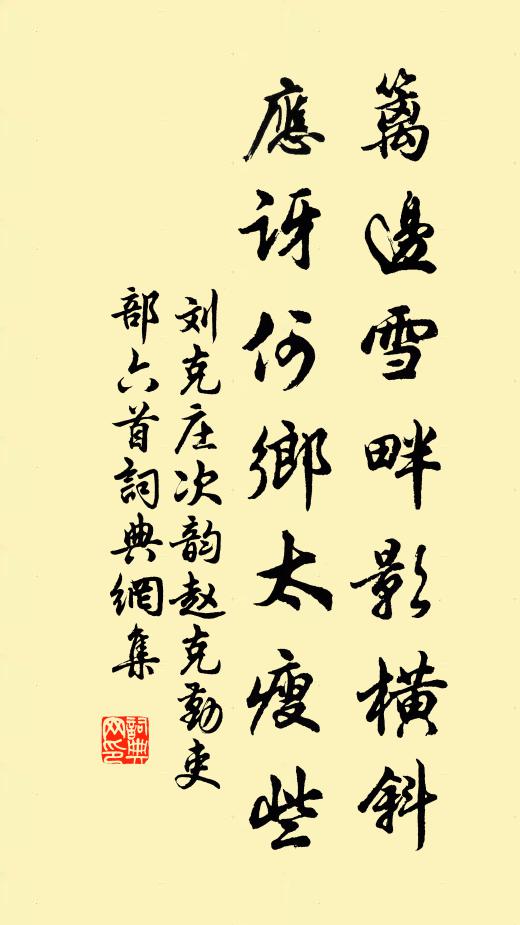 籬邊雪畔影橫斜
應訝何鄉太瘦些
刘克庄次韵赵克勤吏
部六首詞典網集
詞典
网印